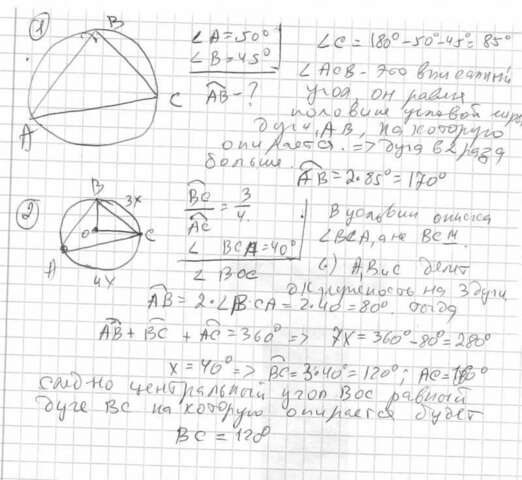 ① B
∠A=50°
∠B=45°
AB-?
A
C
∠C=180°-50°-45°=85°
∠ACB - это вписанный
угол, он равен
половине угловой
дуги, AB, на которую
опирается. => дуга в 2 раза
больше.
AB=2·85°=170°
② B 3x
O C
A
4x
BC/AC = 3/4
∠ BCA=40°
∠ BOC
В условии описка
∠BCA, а не BCM.
A, B и C делит
окружность на 3 дуги
AB = 2·∠BCA=2·40=80°. тогда
AB+BC+AC=360° => 7x=360°-80°=280°
x=40° => BC=3·40°=120°; AC=160°
след-но центральный угол BOC равный
дуге BC на которую опирается будет
BC=120